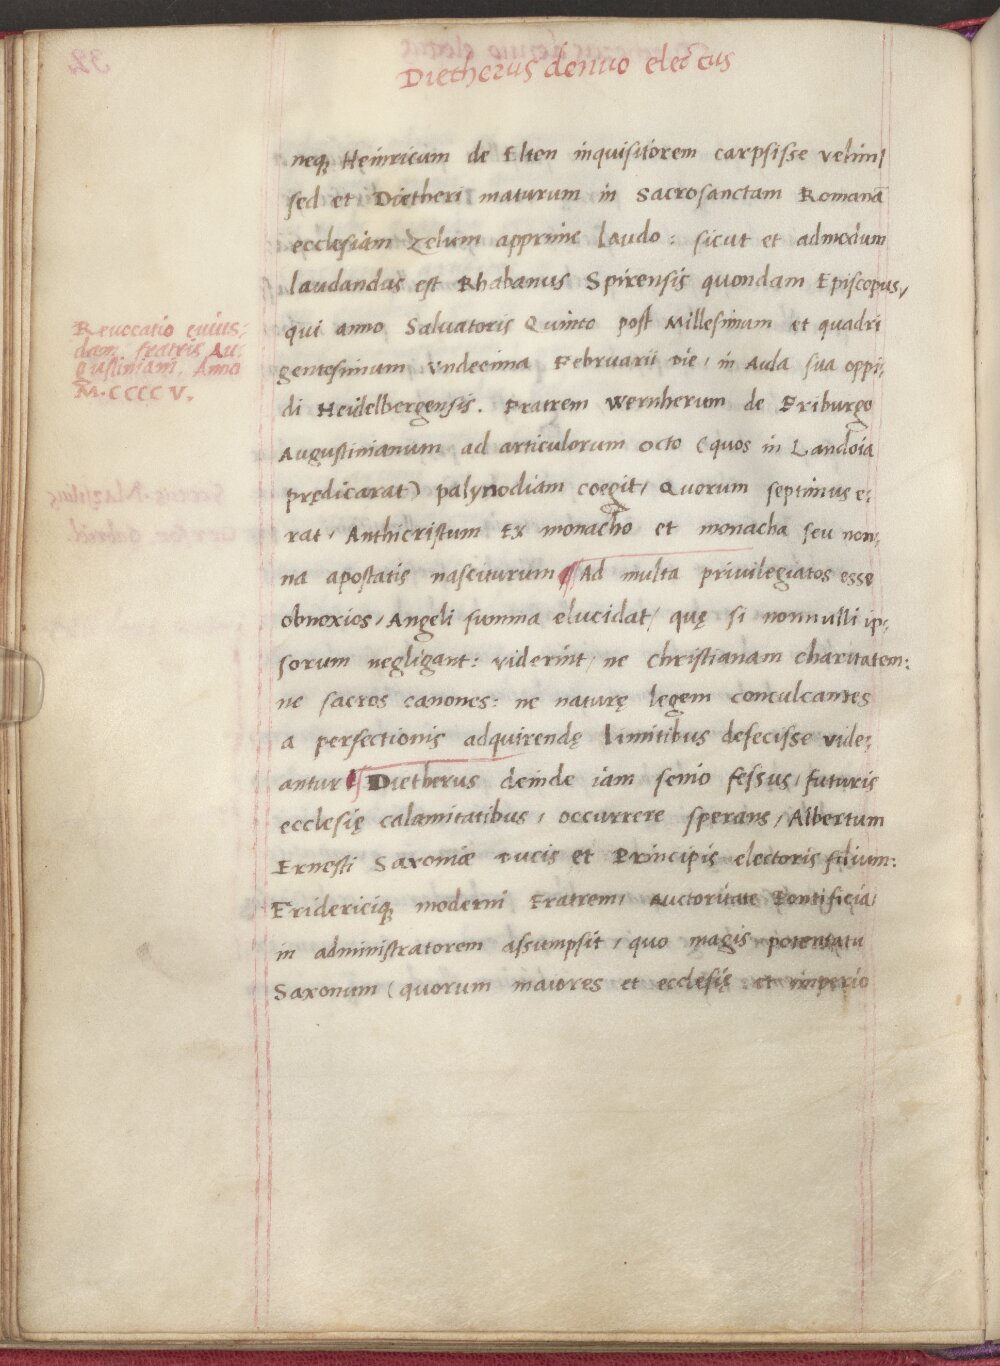 Dietherus denuo electus
neq; Heinricum de Elten inquisitorem carpsisse velim/
sed et Dietheri maturum in Sacrosanctam Romanā
ecclesiam Zelum apprime laudo: sicut et admodum
laudandus est Rhabanus Spirensis quondam Episcopus,
qui anno Salvatoris Quinto post Millesimum et quadri
gentesimum Vndecima Februarii Die, in Aula sua oppi,
di Heidelbergensis. Fratrem Wernherum de Friburgo
Augustinianum ad articulorum Octo (quos in Landoia
prędicarat) palynodiam coegit, Quorum septimus e,
rat, Anthicristum Ex monacho et monacha seu non,
na apostatis nasciturum ¶ Ad multa privilegiatos esse
obnoxios, Angeli summa elucidat, quę si nonnulli ip,
sorum negligant: viderint, ne christianam charitatem:
ne sacros canones: ne naturę legem conculcantes
a perfectionis adquirendę limitibus defecisse vide,
antur ¶ Dietherus deinde iam senio fessus, futuris
ecclesię calamitatibus, occurrere sperans, Albertum
Ernesti Saxoniæ Ducis et Principis electoris filium:
Fridericiq; moderni Fratrem, Auctoritate Pontificia,
in administratorem assumpsit, quo magis potentatu
Saxonum (quorum maiores et ecclesię et imperio
Revocatio cuius,
dam fratris Au,
gustiniani. Anno
M.CCCC V.